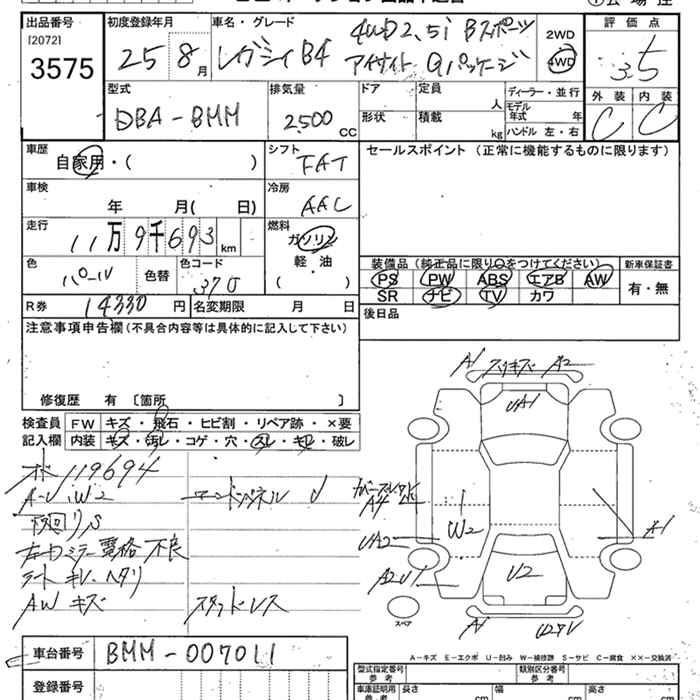 出品番号
[2072]
3575
初度登録年月
25 8月
車名・グレード
レガシィB4 4WD 2.5i Bスポーツ
アイサイト Gパッケージ
2WD
4WD
評価点
3.5
外装 内装
C C
型式
DBA-BMM
排気量
2500 CC
ドア
形状
定員
人
積載
kg
ディーラー・並行
モデル年式 年
ハンドル 左・右
車歴
自家用・( )
シフト
FAT
車検
年 月( 日)
冷房
AAC
走行
11万9千693 km
燃料
ガソリン
軽・油
( )
色
パール
色替
色コード
37J
R券 14330 円
名変期限 月 日
セールスポイント (正常に機能するものに限ります)
装備品 (純正品に限り○をつけてください)
新車保証書
PS PW ABS エアB AW
SR ナビ TV カワ
有・無
後日品
注意事項申告欄(不具合内容等は具体的に記入して下さい)
修復歴 有 〔箇所 〕
検査員
記入欄
FW キズ・飛石・ヒビ割・リペア跡・×要
内装 キズ・汚レ・コゲ・穴・スレ・キレ・破レ
119694
W2
下廻りS
右ドアミラー電格不良
シート キレ・ヘタリ
AW キズ
スタッドレス
A1 スリキズ A2
UA1
A4
UA2
W2
A1
A2U1
U2
A1
スペア
A-キズ E-エクボ U-凹み W-補修跡 S-サビ C-腐食 ××-交換済
車台番号
BMM-007011
登録番号
型式指定番号
参考
類別区分番号
参考
車庫証明用
参考
長さ cm
幅 cm
高さ cm